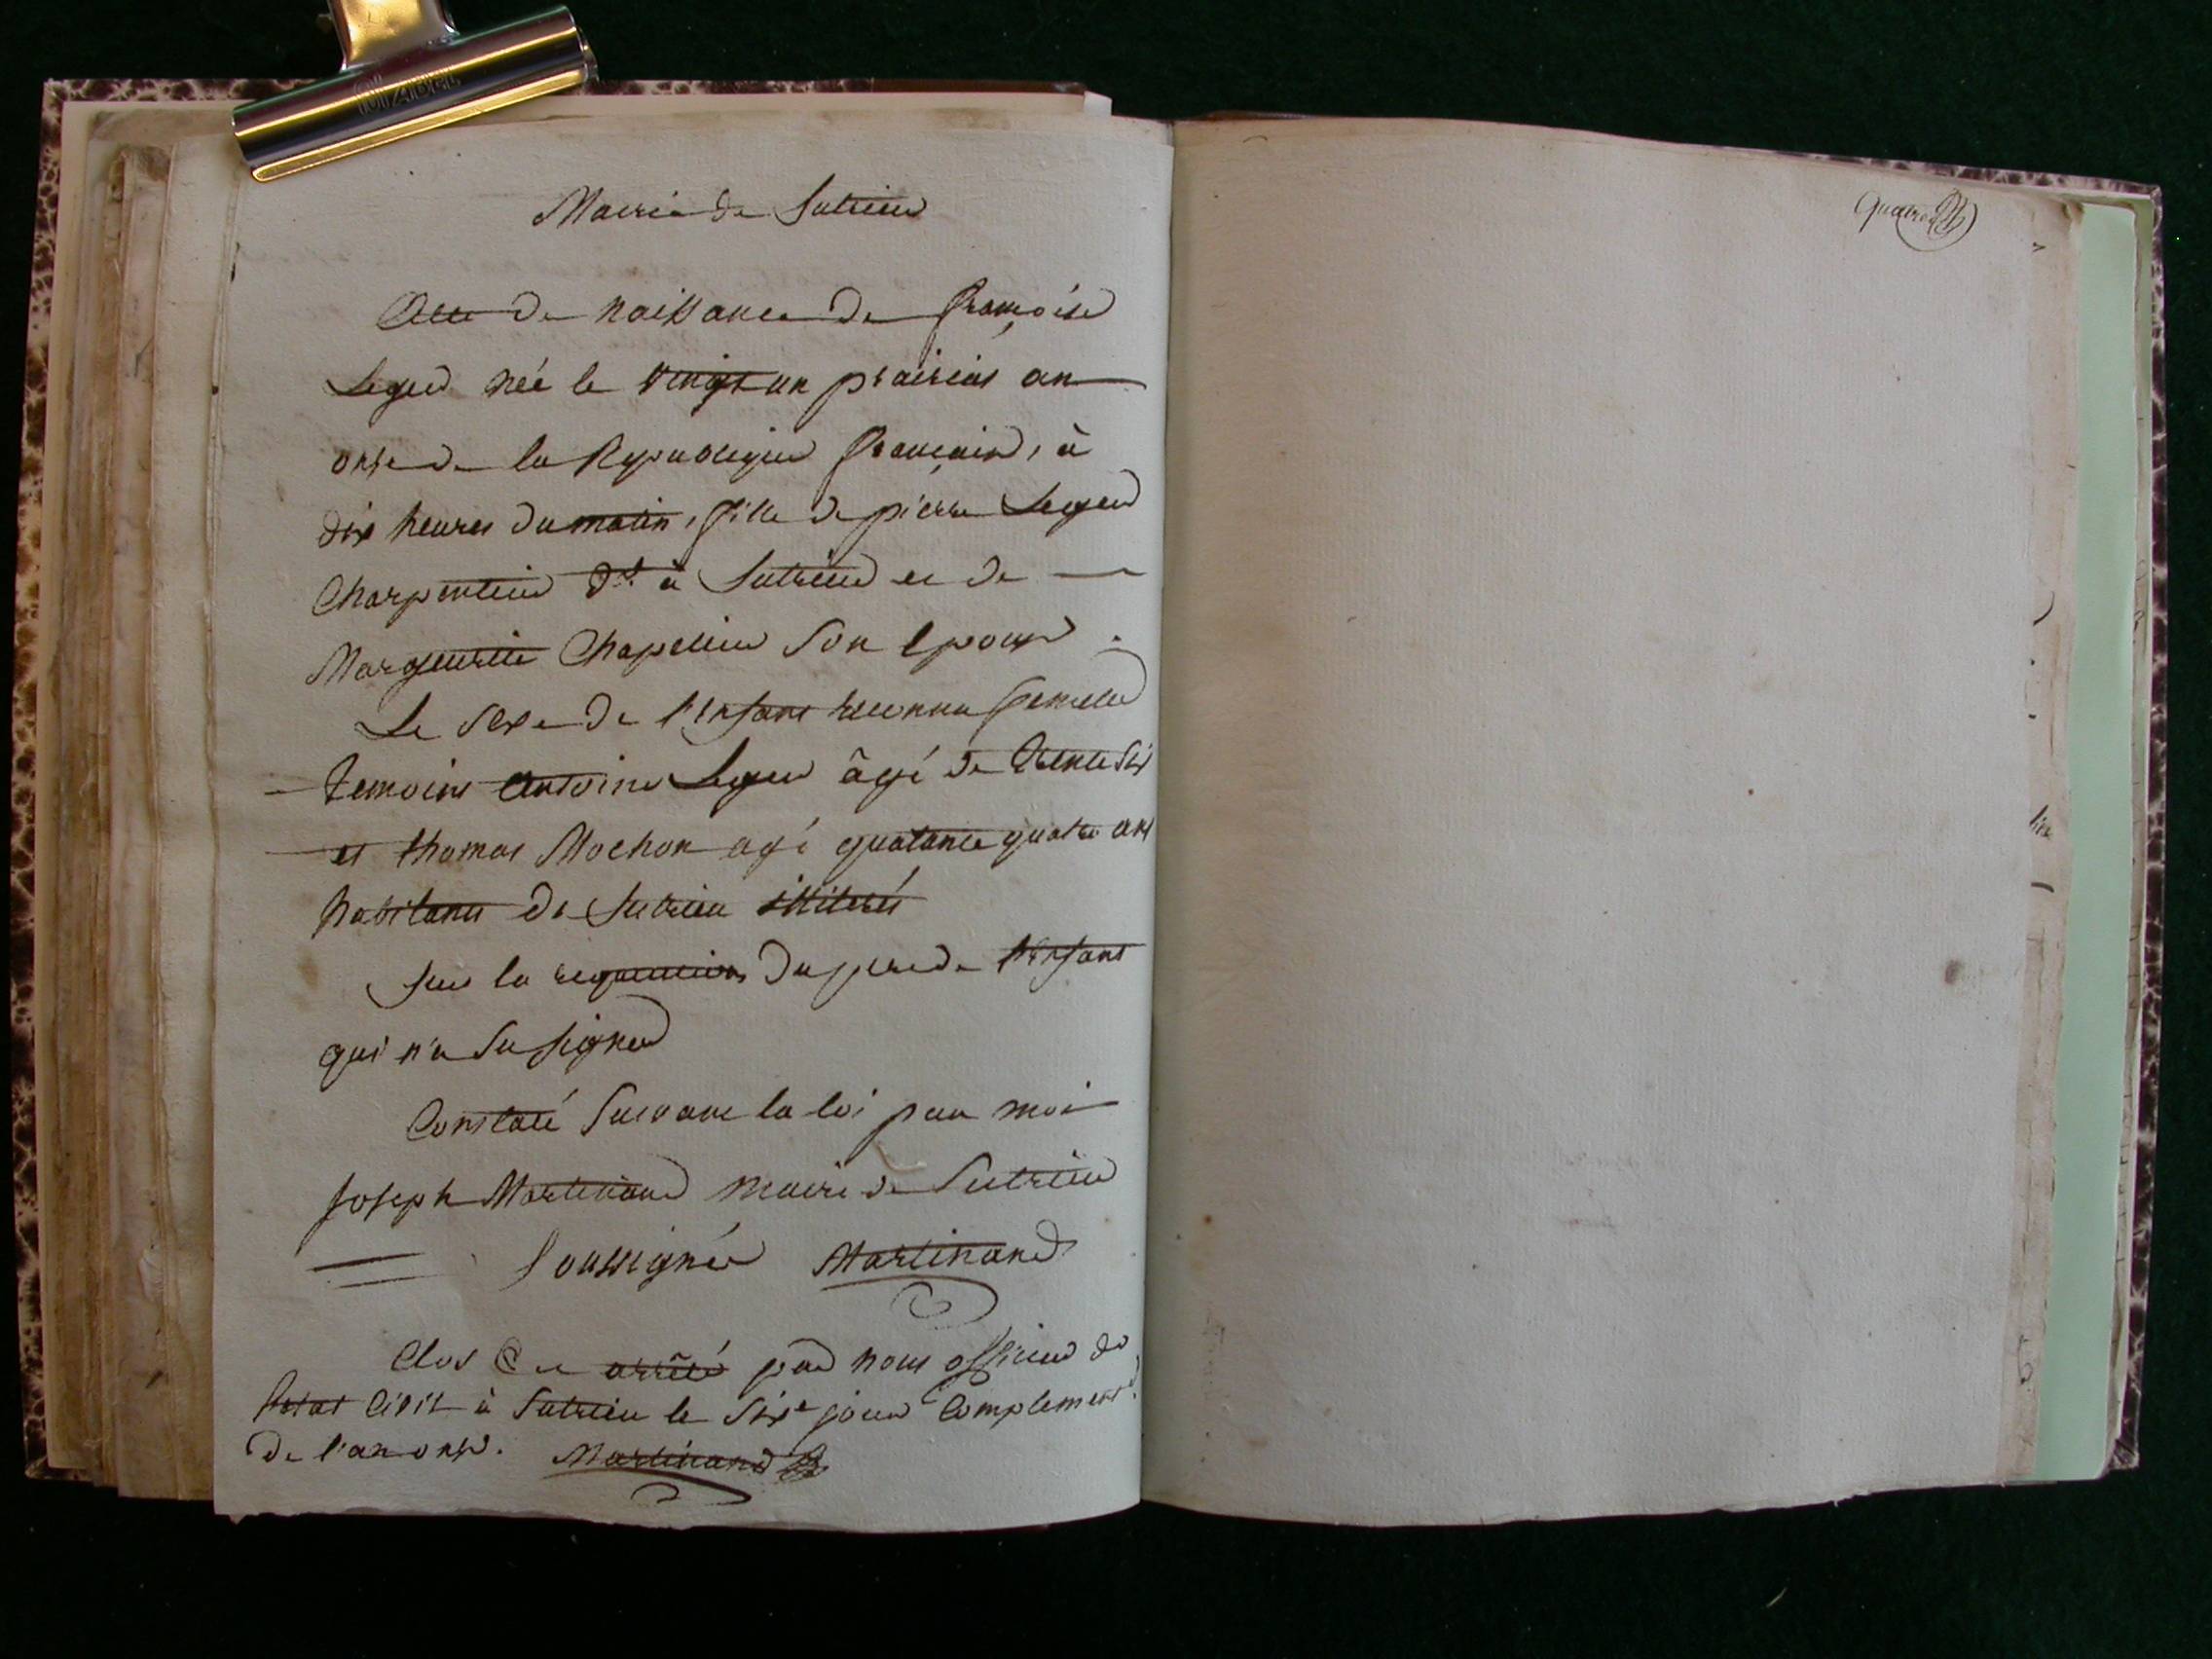 Mairie de Sutrieu
Acte de naissance de françoise
Leger née le vingt un prairial an
onze de la Republique française, à
dix heures du matin, fille de pierre Leger
Charpentier dt. à Sutrieu et de
Marguerite Chapelier son epouse.
Le sexe de l'enfant reconnu femelle
temoins antoine Leger âgé de trente six
et thomas Mochon agé quarante quatre ans
habitants de Sutrieu illiterés
sur la requisition du pere de l'enfant
qui n'a su signer
Constaté suivant la loi par moi
Joseph Martinand maire de Sutrieu
soussigné Martinand
Clos et arrêté par nous officier de
l'etat civil à Sutrieu le sixe jour Complement.
de l'an onze. Martinand